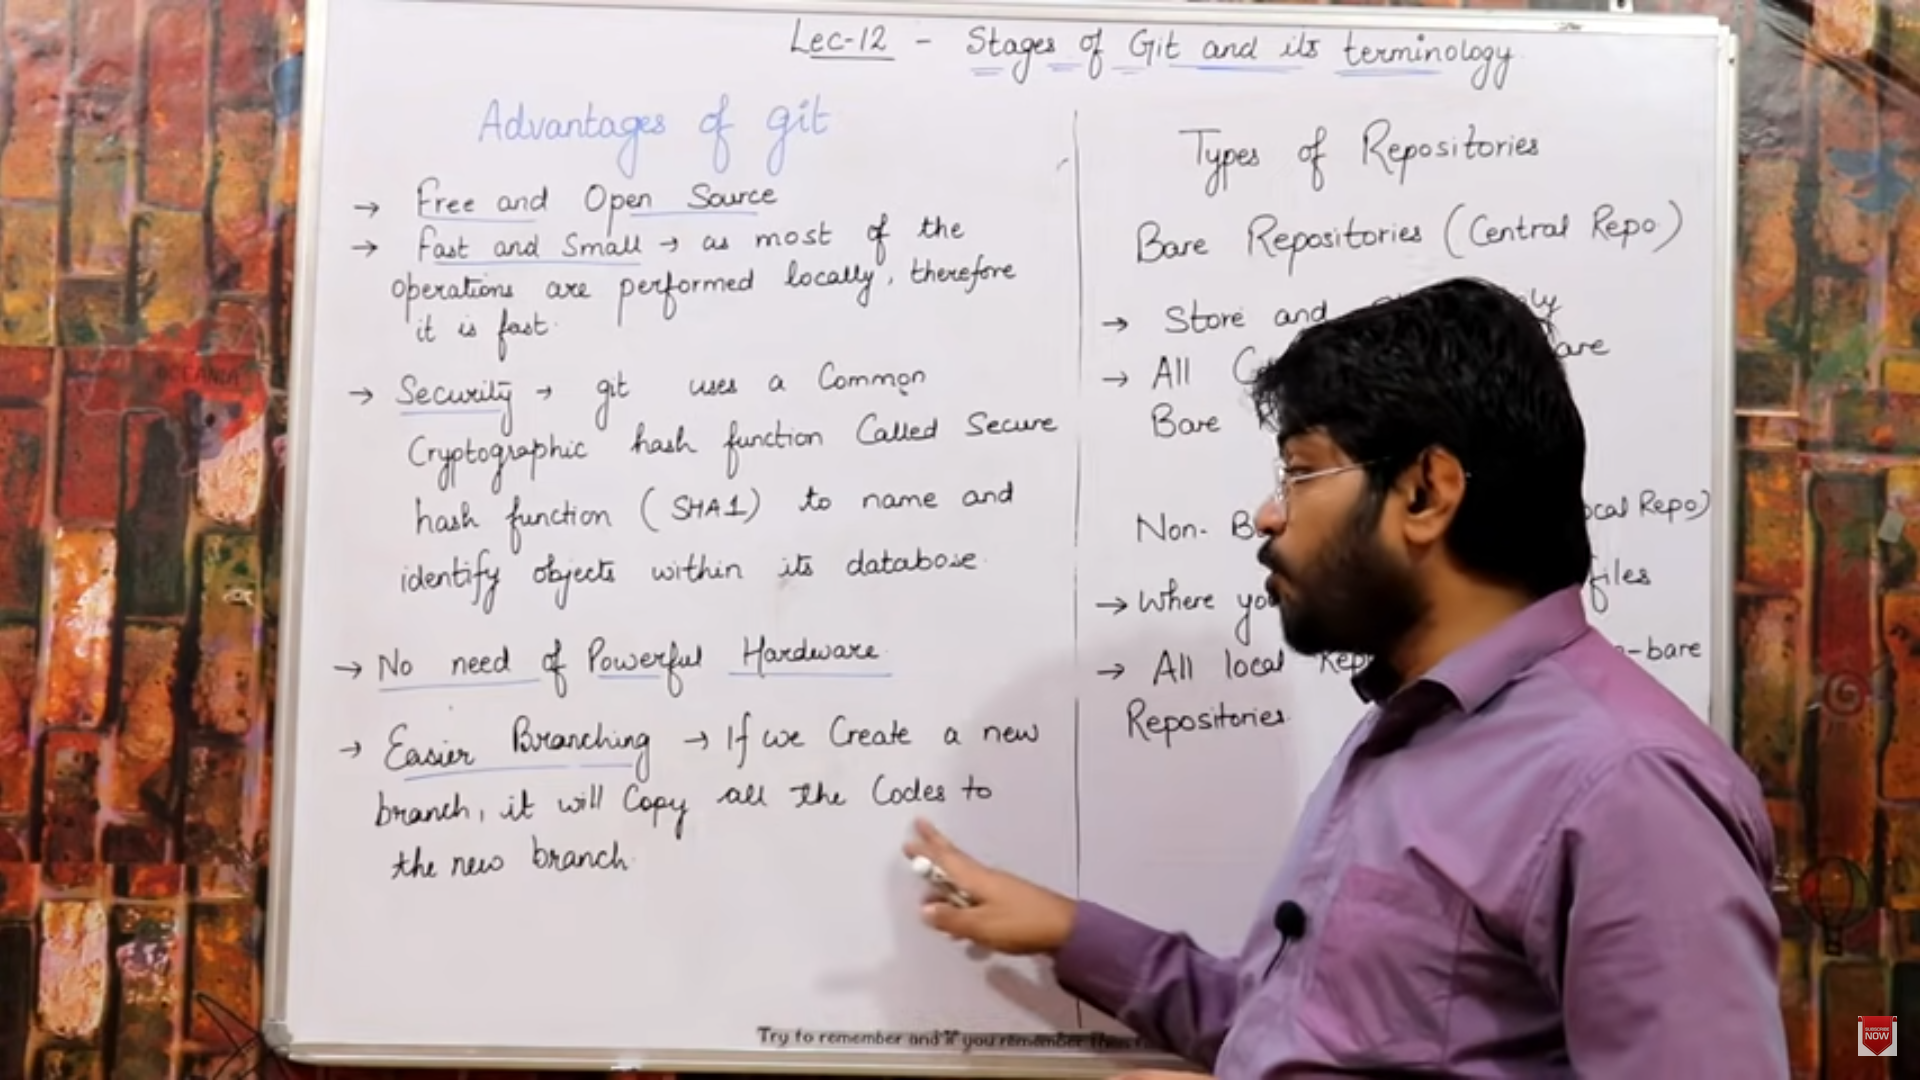 Lec-12 - Stages of Git and its terminology
Advantages of git
→ Free and Open Source
→ Fast and Small → as most of the
operations are performed locally, therefore
it is fast.
→ Security → git uses a Common
Cryptographic hash function Called Secure
hash function (SHA1) to name and
identify objects within its database.
→ No need of Powerful Hardware.
→ Easier Branching → If we Create a new
branch, it will Copy all the Codes to
the new branch.
Types of Repositories
Bare Repositories (Central Repo)
→ Store and
→ All
Bare
Non-
Repo)
→ Where files
→ All local -bare
Repositories.
Try to remember and if you remember
SUBSCRIBE
NOW